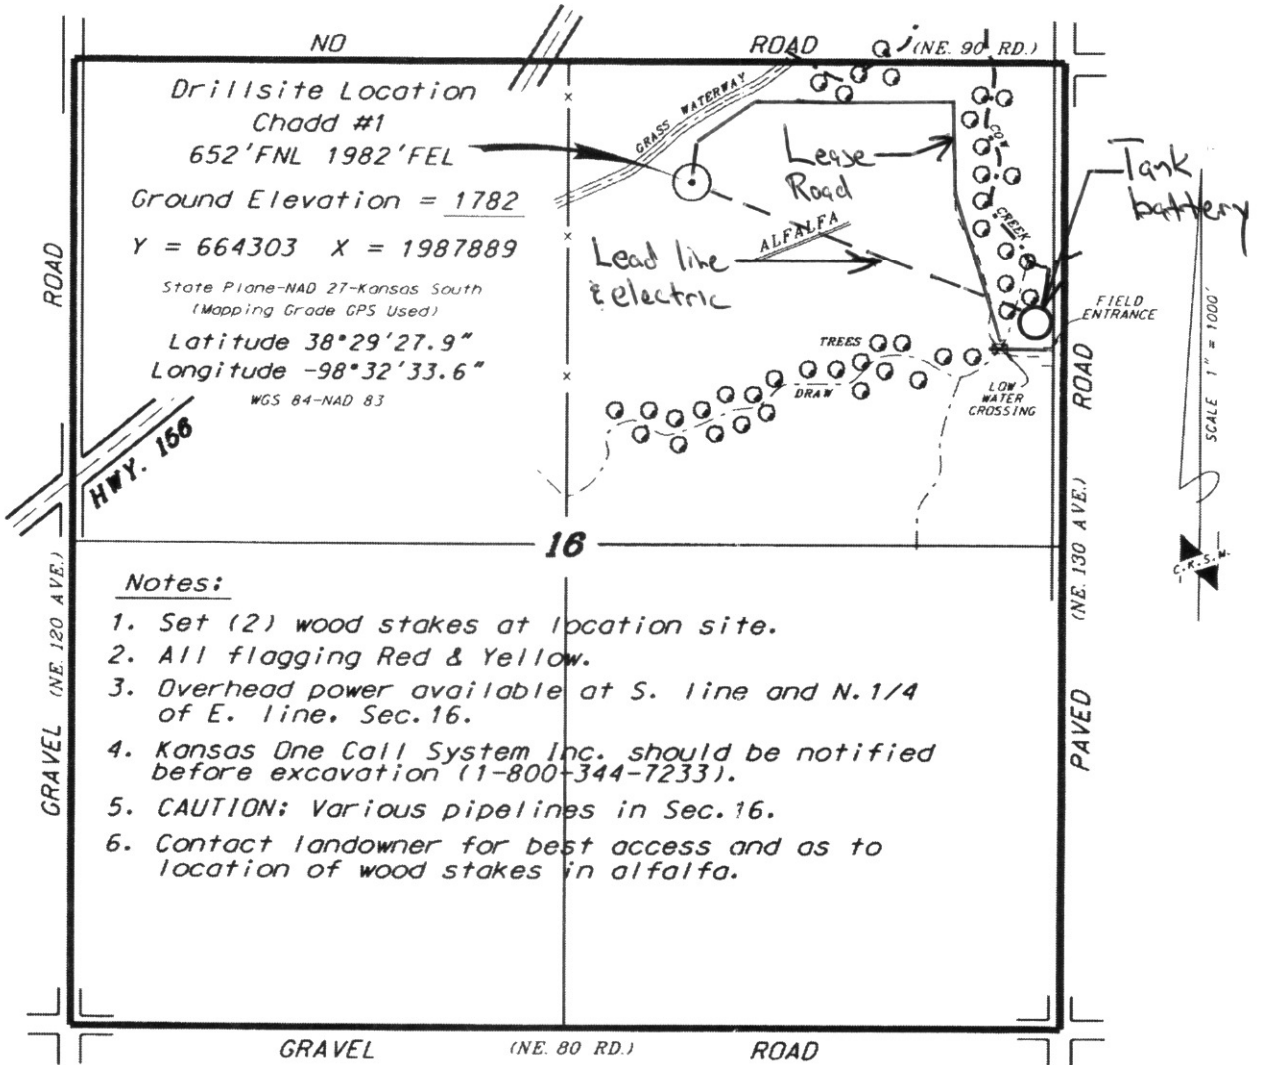 NO ROAD (NE. 90 RD.)
Drillsite Location
Chadd #1
652'FNL 1982'FEL
Ground Elevation = 1782
Y = 664303 X = 1987889
State Plane-NAD 27-Kansas South
(Mapping Grade GPS Used)
Latitude 38°29'27.9"
Longitude -98°32'33.6"
WGS 84-NAD 83
GRASS WATERWAY
Lease
Road
COW
CREEK
Tank
battery
ALFALFA
Lead line
& electric
FIELD
ENTRANCE
TREES
DRAW
LOW
WATER
CROSSING
HWY. 156
ROAD
ROAD
SCALE 1" = 1000'
16
C.K.S.W.
(NE. 120 AVE.)
GRAVEL
(NE. 130 AVE.)
PAVED
Notes:
1. Set (2) wood stakes at location site.
2. All flagging Red & Yellow.
3. Overhead power available at S. line and N. 1/4
of E. line. Sec. 16.
4. Kansas One Call System Inc. should be notified
before excavation (1-800-344-7233).
5. CAUTION: Various pipelines in Sec. 16.
6. Contact landowner for best access and as to
location of wood stakes in alfalfa.
GRAVEL (NE. 80 RD.) ROAD